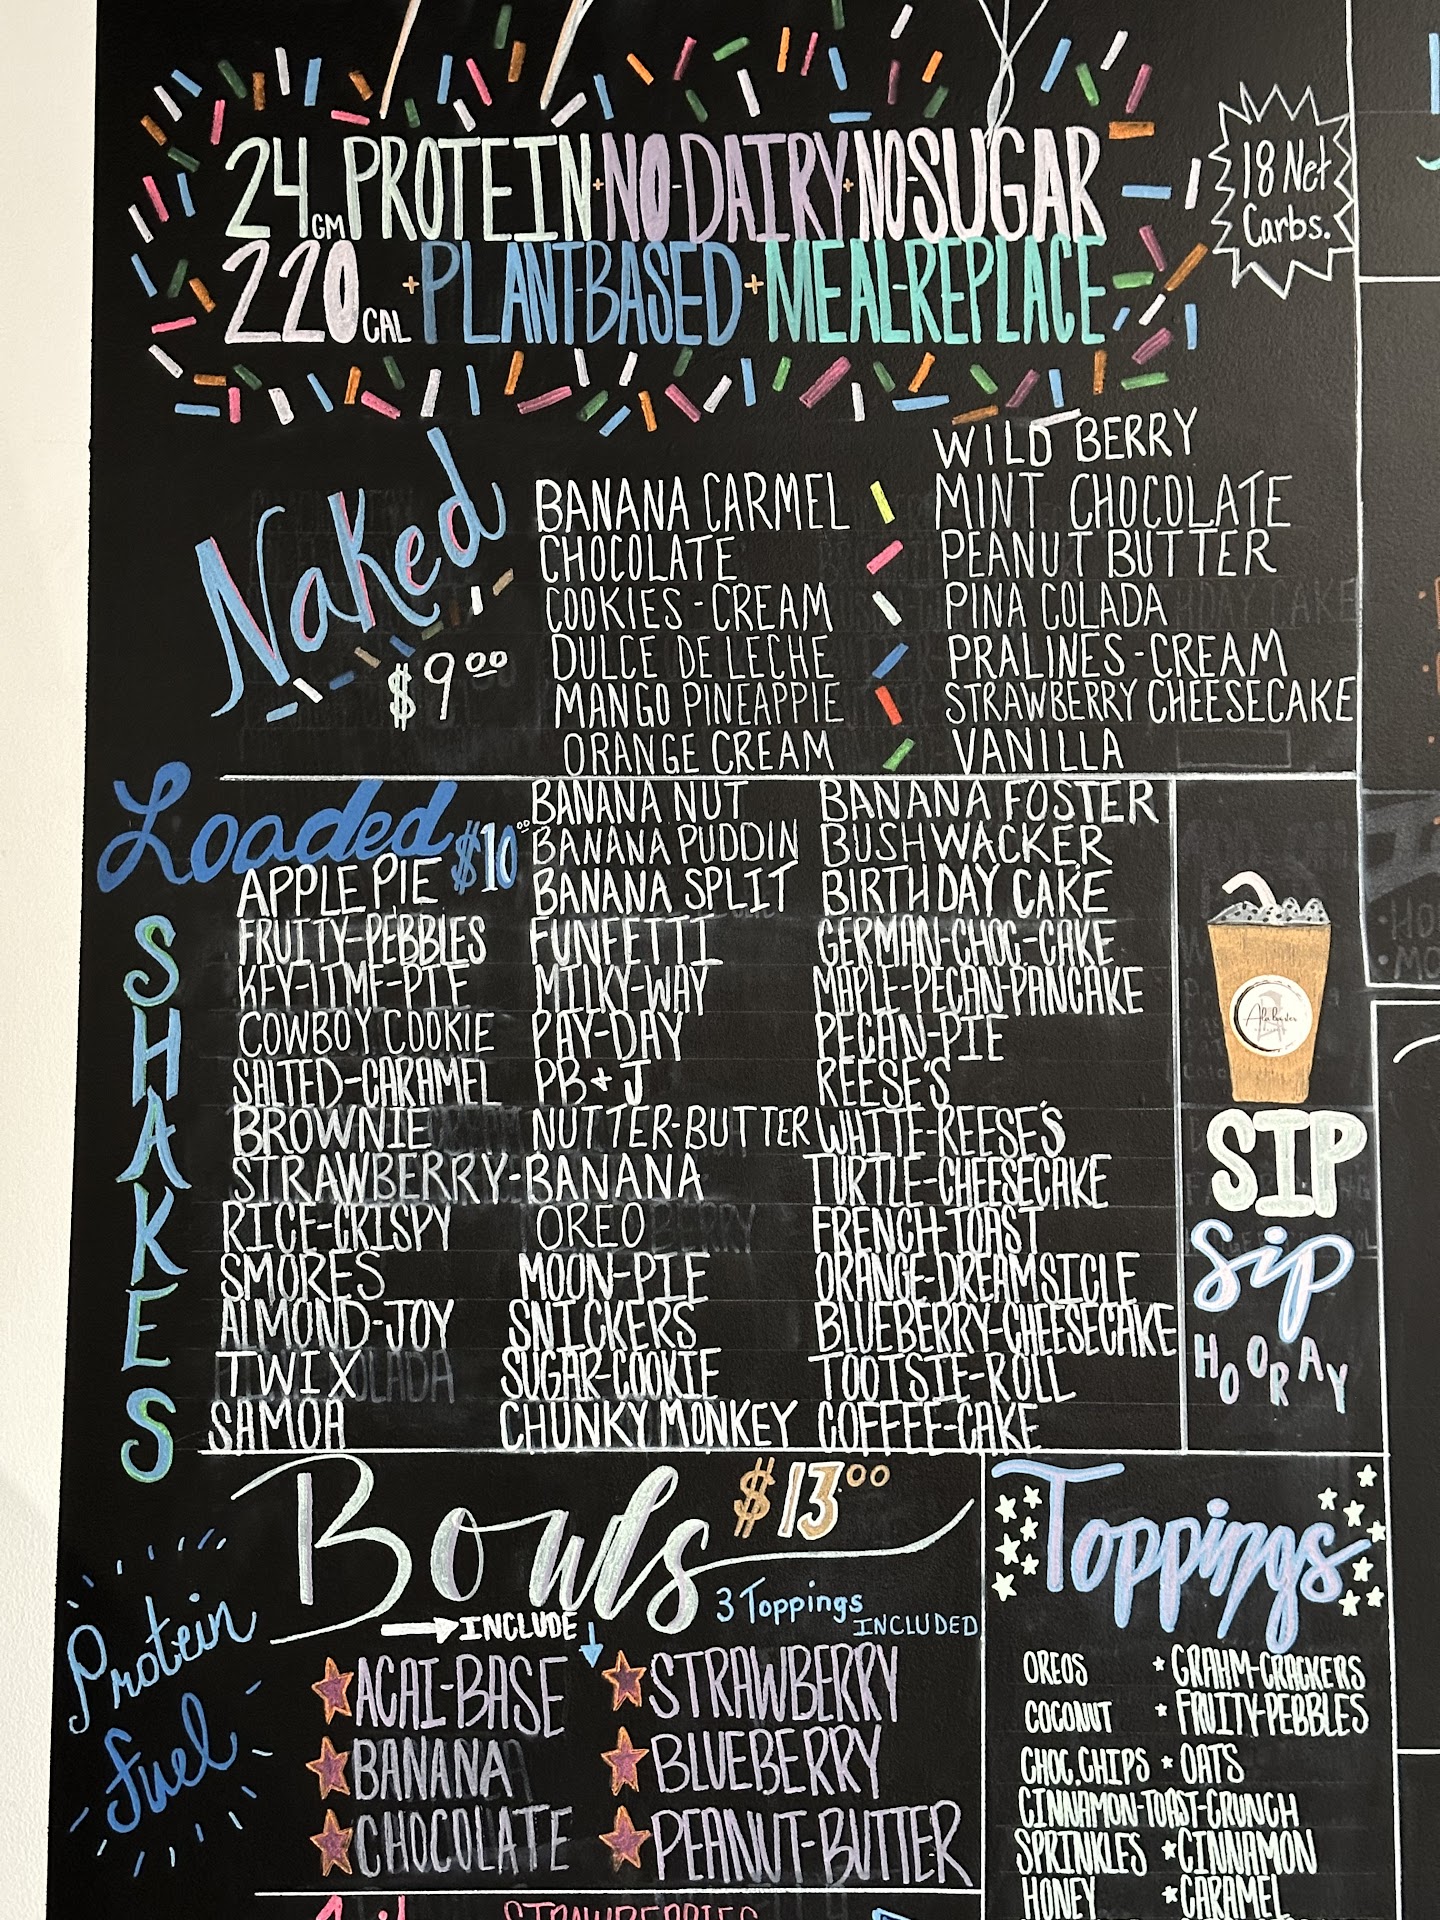 24 GM PROTEIN + NO-DAIRY + NO-SUGAR
220 CAL + PLANT-BASED + MEAL-REPLACE
18 Net
Carbs.
Naked
$9.00
BANANA CARMEL
CHOCOLATE
COOKIES-CREAM
DULCE DE LECHE
MANGO PINEAPPIE
ORANGE CREAM
WILD BERRY
MINT CHOCOLATE
PEANUT BUTTER
PINA COLADA
PRALINES-CREAM
STRAWBERRY CHEESECAKE
VANILLA
Loaded $10.00
SHAKES
APPLE PIE
FRUITY-PEBBLES
KEY-LIME-PIE
COWBOY COOKIE
SALTED-CARAMEL
BROWNIE
STRAWBERRY-BANANA
RICE-CRISPY
SMORES
ALMOND-JOY
TWIX
SAMOA
BANANA NUT
BANANA PUDDIN
BANANA SPLIT
FUNFETTI
MILKY-WAY
PAY-DAY
PB+J
NUTTER-BUTTER
OREO
MOON-PIE
SNICKERS
SUGAR-COOKIE
CHUNKY MONKEY
BANANA FOSTER
BUSHWACKER
BIRTHDAY CAKE
GERMAN-CHOC-CAKE
MAPLE-PECAN-PANCAKE
PECAN-PIE
REESE'S
WHITE-REESE'S
TURTLE-CHEESECAKE
FRENCH-TOAST
ORANGE-DREAMSICLE
BLUEBERRY-CHEESECAKE
TOOTSIE-ROLL
COFFEE-CAKE
SIP
Sip
HOORAY
Protein
fuel
Bowls $13.00
INCLUDE
3 Toppings
INCLUDED
ACAI-BASE
BANANA
CHOCOLATE
STRAWBERRY
BLUEBERRY
PEANUT-BUTTER
Toppings
OREOS * GRAHM-CRACKERS
COCONUT * FRUITY-PEBBLES
CHOC.CHIPS * OATS
CINNAMON-TOAST-CRUNCH
SPRINKLES * CINNAMON
HONEY * CARAMEL
STRAWBERRIES